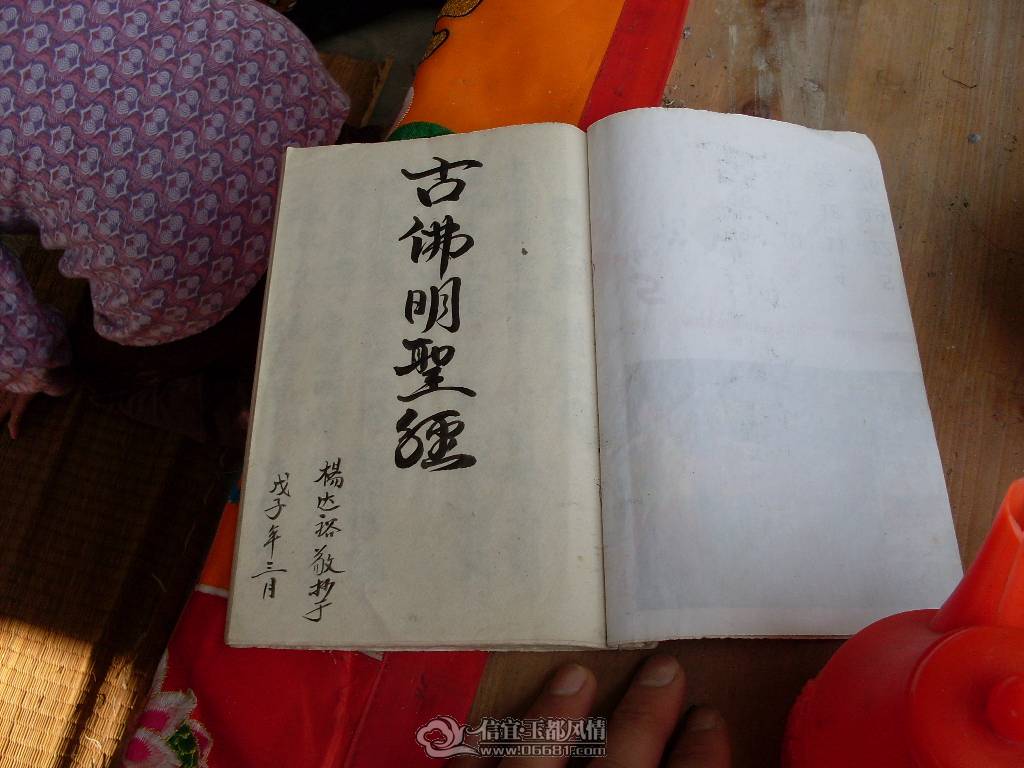 古佛明聖經
楊达裕敬抄于
戊子年三月
信宜玉都风情
www.06681.com